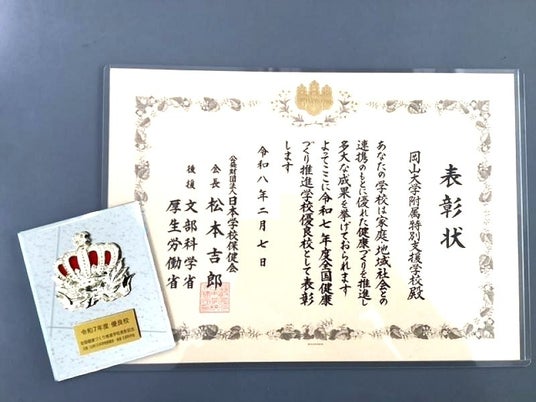 表彰状
岡山大学附属特別支援学校殿
あなたの学校は家庭・地域社会との
連携のもとに優れた健康づくりを推進し
多大な成果を挙げておられます
よってここに令和七年度全国健康
づくり推進学校優良校として表彰
します
令和八年二月七日
公益財団法人日本学校保健会
会長 松本吉郎
後援 文部科学省
厚生労働省
令和7年度 優良校